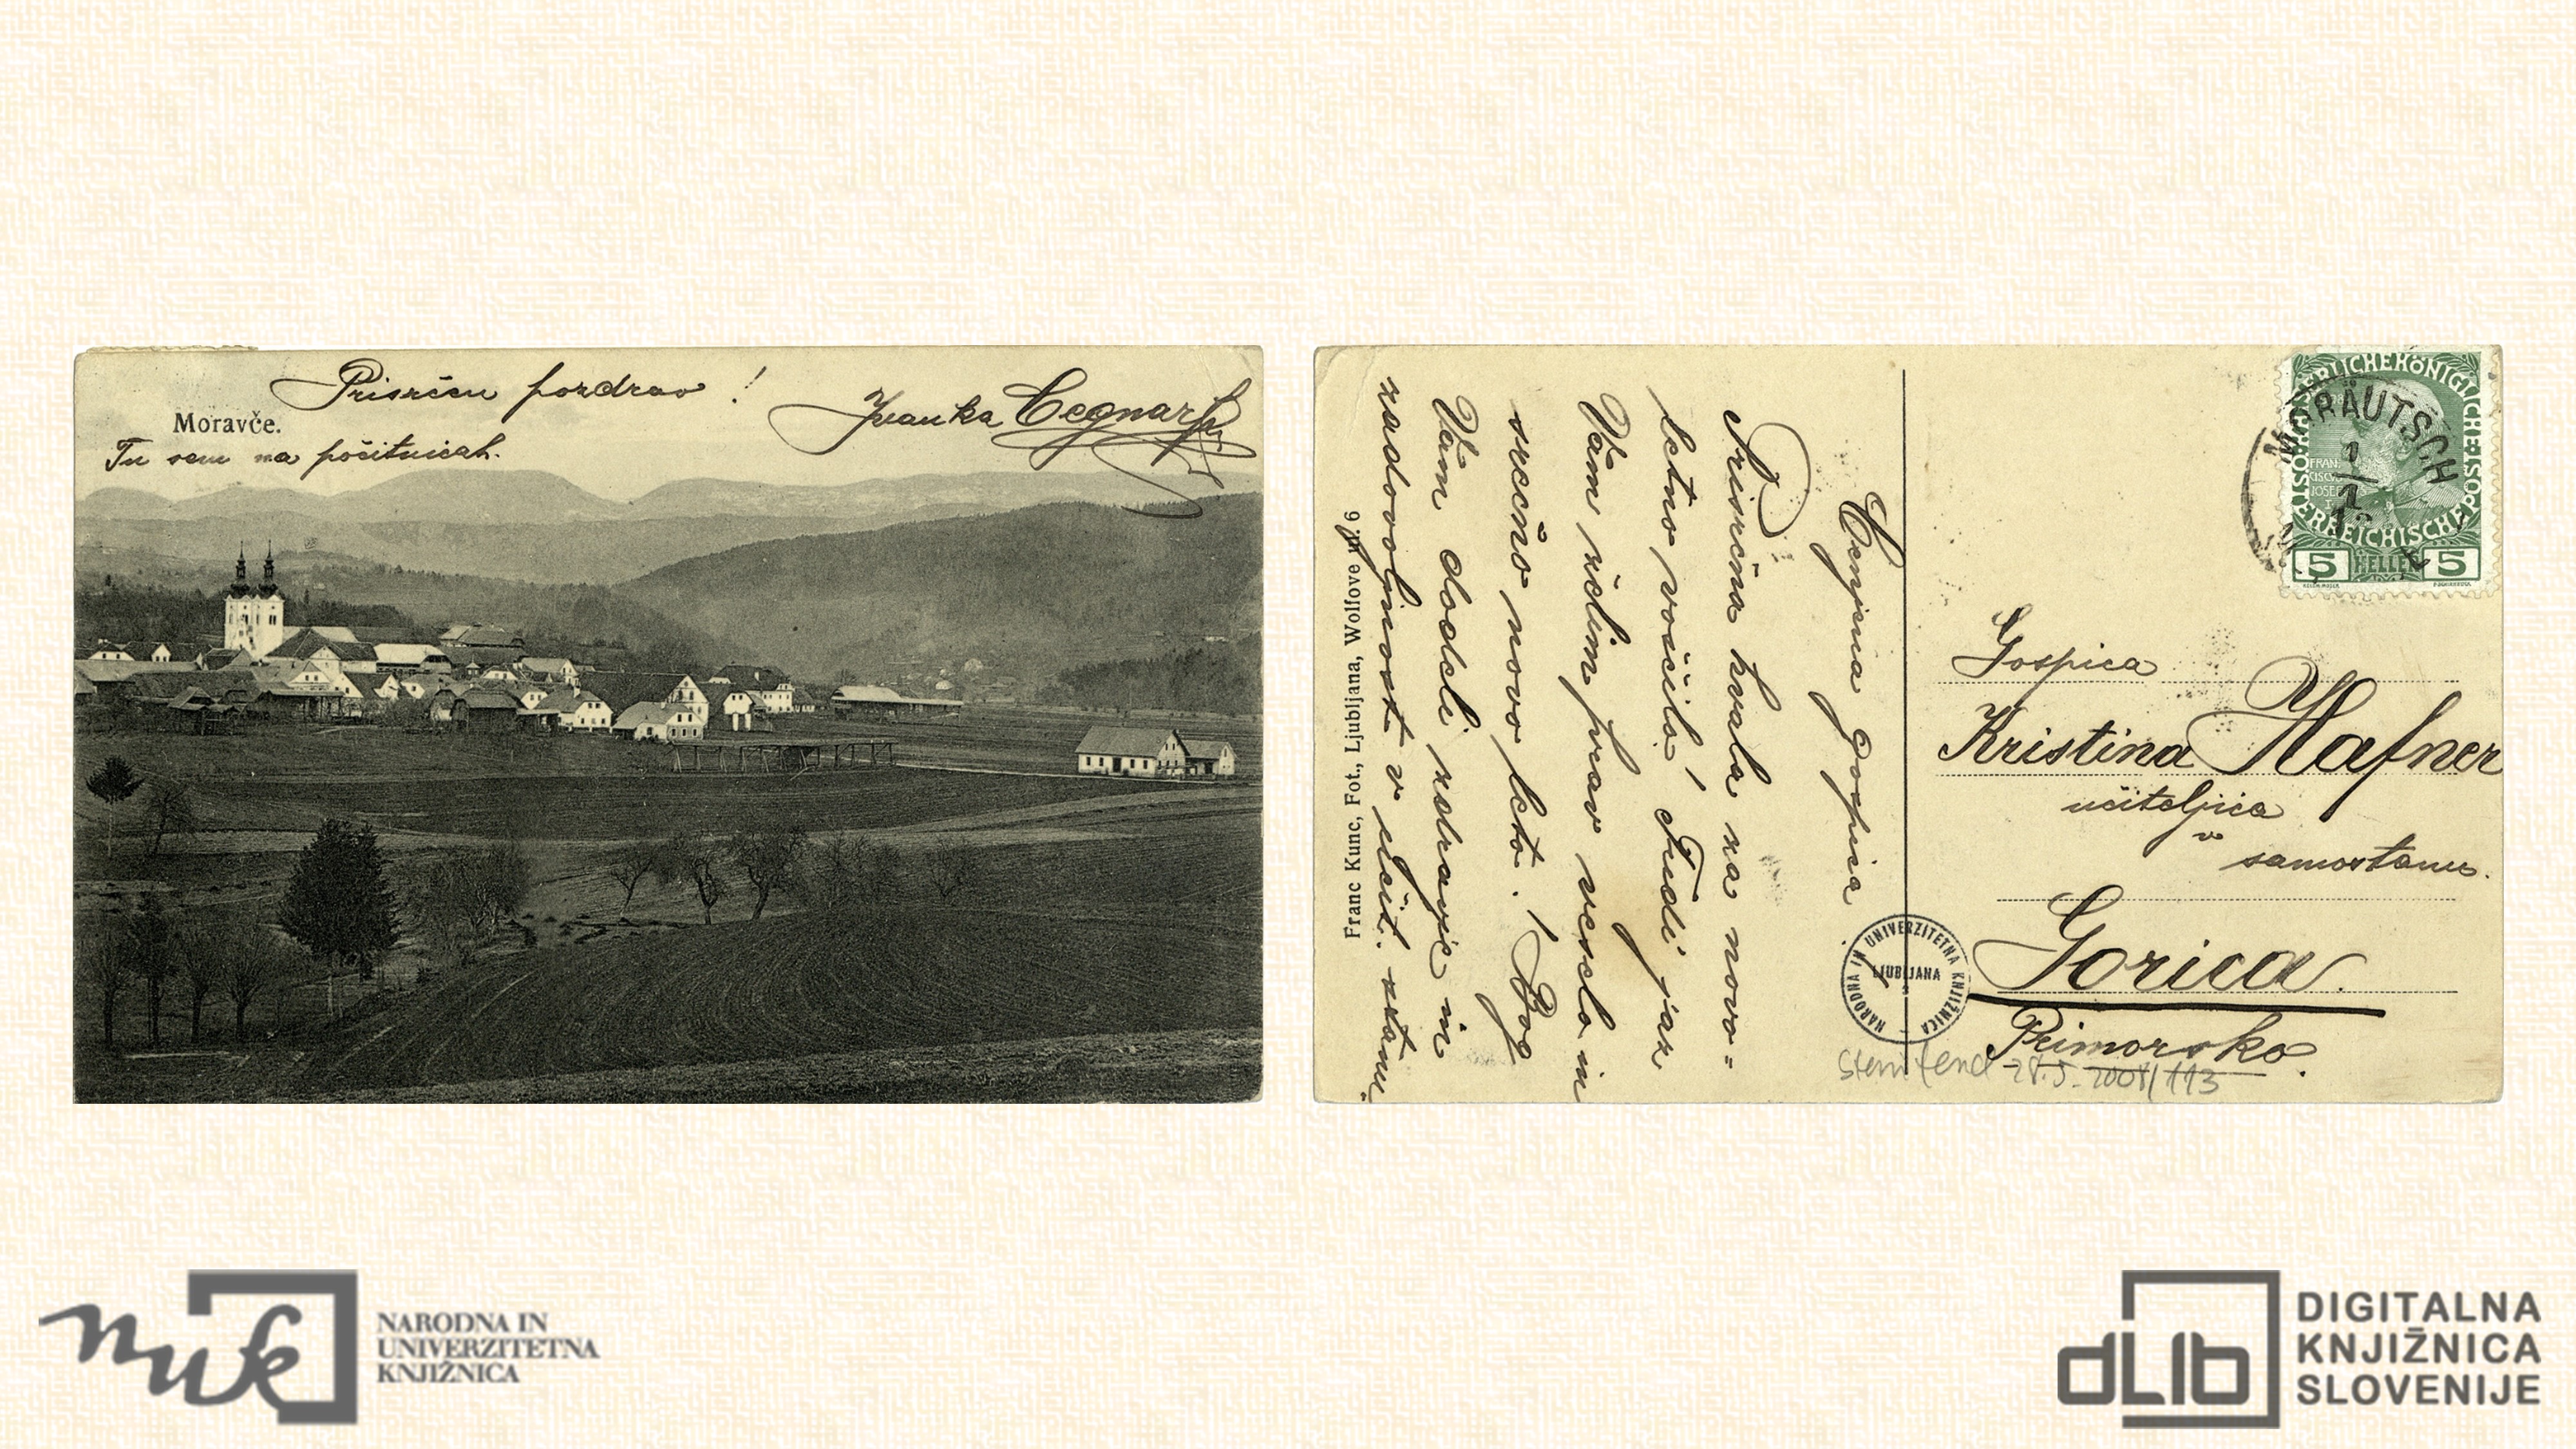 Prisrčen pozdrav!
Ivanka Cegnar
Moravče.
Tu sem na počitnicah.
Cenjena gospica
Prisrčna hvala za novo=
letno voščilo! Tudi jaz
Vam želim prav veselo in
srečno novo leto! Bog
Vam dodeli zdravje in
zadovoljnost v učit. stanu.
Franc Kunc, Fot., Ljubljana, Wolfove ul. 6
KAISERLICHE KÖNIGLICHE ÖSTERREICHISCHE POST
FRAN
CISCVS
JOSEF
5 HELLER 5
MORÄUTSCH
Gospica
Kristina Hafner
učiteljica
v
samostanu.
Gorica.
Primorsko.
NARODNA IN UNIVERZITETNA KNJIŽNICA
LJUBLJANA
28.5.2008/113
nuk
NARODNA IN
UNIVERZITETNA
KNJIŽNICA
dLIb
DIGITALNA
KNJIŽNICA
SLOVENIJE